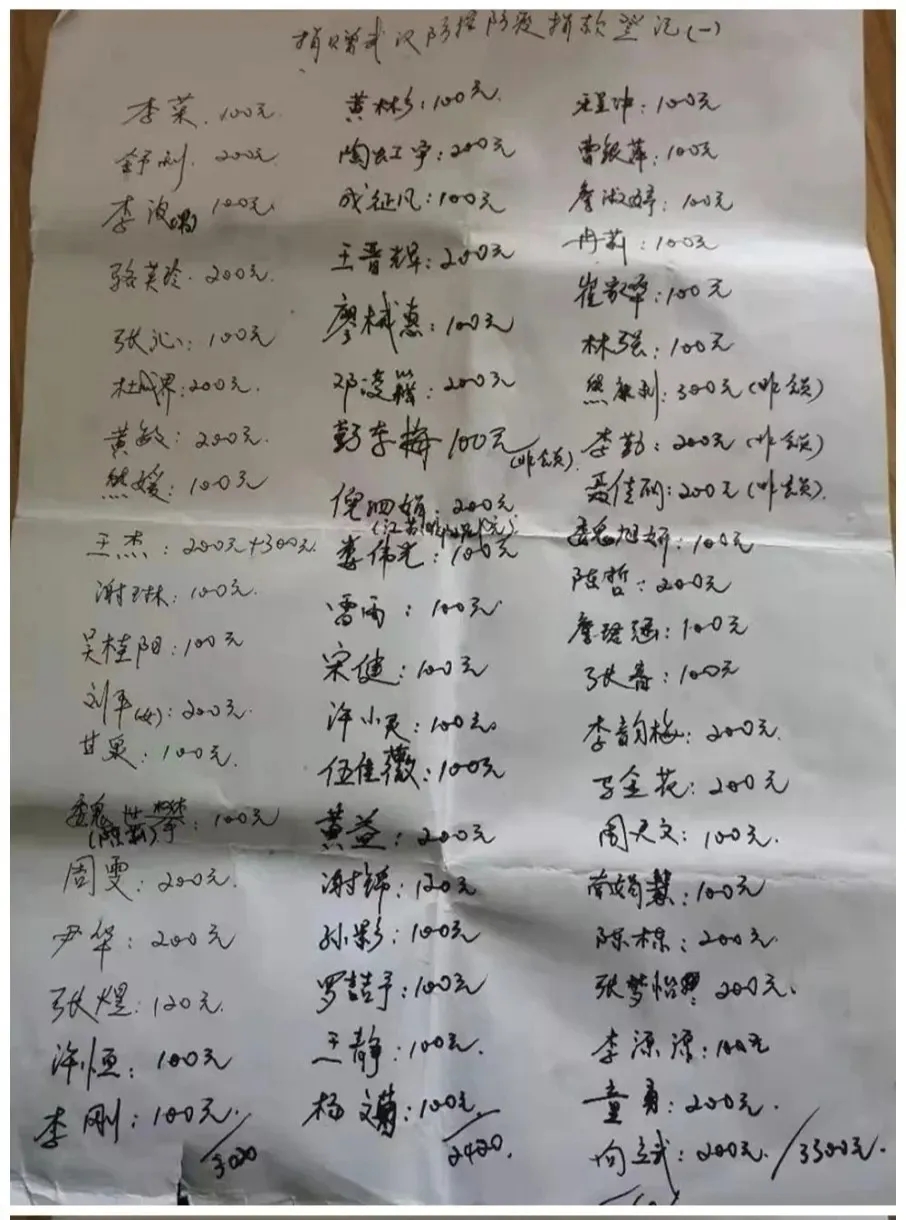 捐赠武汉防控防疫捐款登记(一)
李菜. 100元.
舒利. 200元.
李波 100元.
骆英玲. 200元.
张沁: 100元
杜成界: 200元.
黄敏: 200元.
熊媛: 100元
王杰: 200元+300元.
谢琳: 100元.
吴桂阳: 100元
刘平(女): 200元.
甘果: 100元.
魏 : 100元
周雯: 200元.
尹华: 200元
张煜: 120元.
许恒: 100元
李刚: 100元.
/3020
黄林彬: 100元.
陶虹宇: 200元
成征风: 100元
王晋辉: 200元
廖棫惠: 100元
邓凌 : 200元
李梅 100元
倪 娟: 200元
娄伟光: 100元
雷雨: 100元
宋健: 100元
许小灵: 100元
伍佳薇: 100元
黄益: 200元
谢锦: 120元
孙影: 100元
罗喆予: 100元
王静: 100元.
杨文 : 100元.
/2420.
汪星坤: 100元
曹银萍: 100元
詹淑婷: 100元
冉莉: 100元
崔家 : 100元
林强: 100元
熊康利: 300元
李勤: 200元
聂佳 : 200元
魏旭妍: 100元
陈哲: 200元
詹珺涵: 100元
张睿: 100元
李韵梅: 200元
金花: 200元
周天文: 100元.
娟慧: 100元
陈栋: 200元.
张梦怡 : 200元.
李源源: 100元
童勇: 200元.
向武: 200元. /3300元.